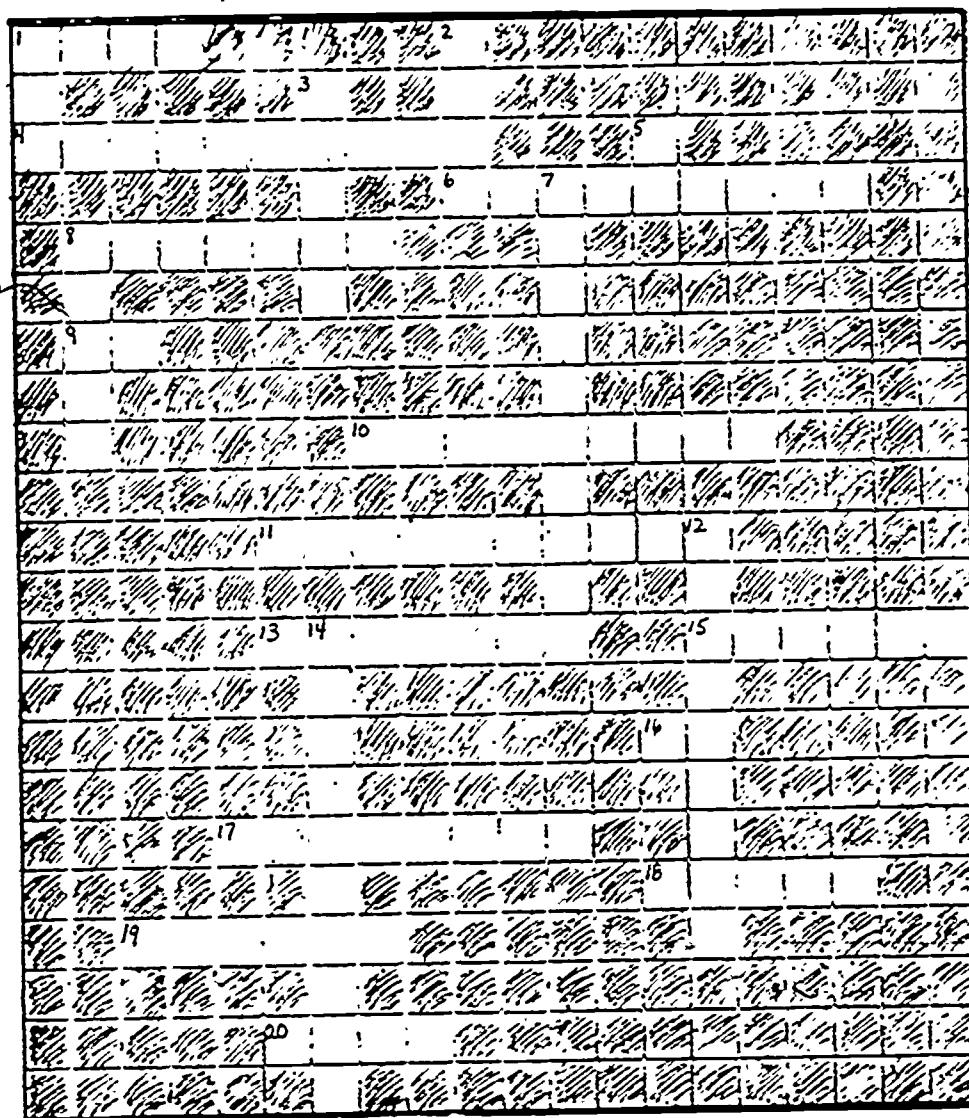 1 2
3
4 5
6 7
8
9
10
11 12
13 14 15
16
17
18
19
20